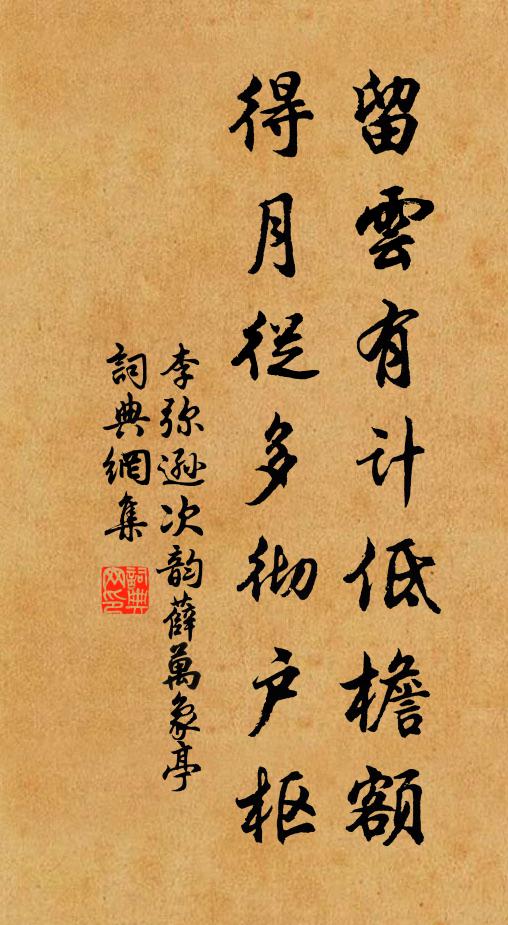 留雲有计低檐額
得月從多彻户枢
李弥逊次韵薛萬象亭
詞典網集
詞典網印